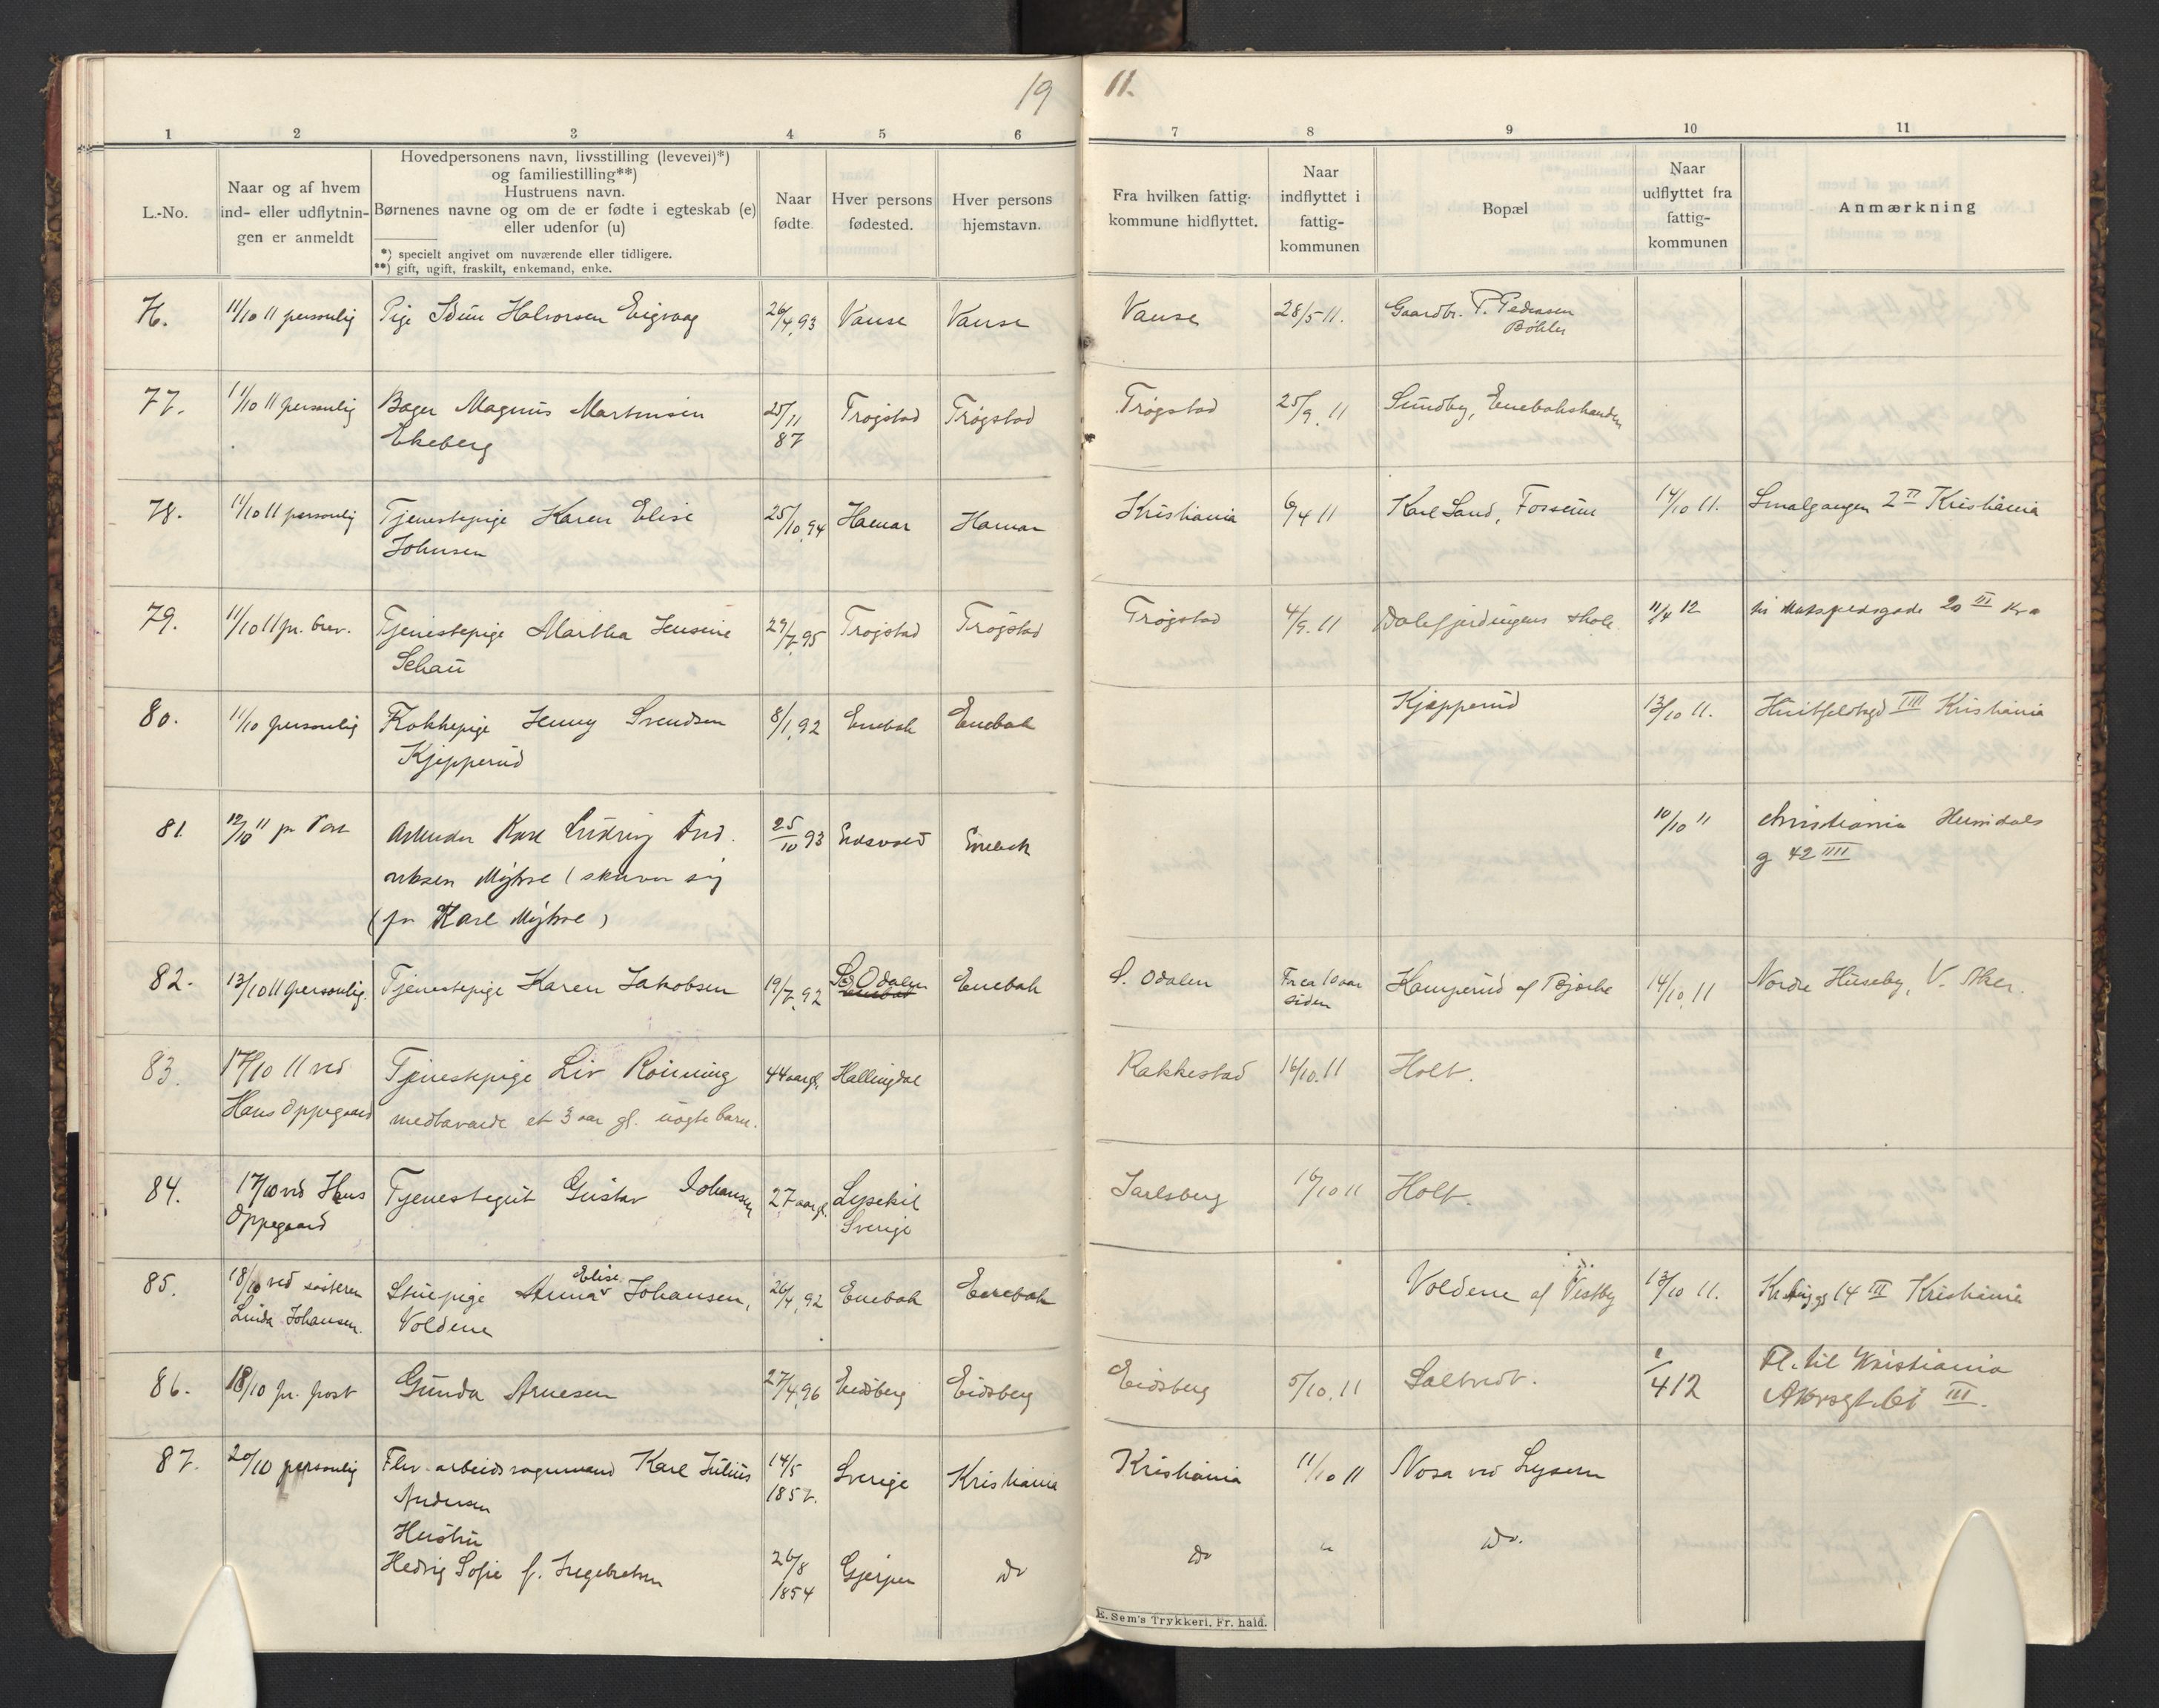 19 11.
1 2 3 4 5 6 7 8 9 10 11
L.-No.
Naar og af hvem
ind- eller udflytnin-
gen er anmeldt
Hovedpersonens navn, livsstilling (levevei)*)
og familiestilling**)
Hustruens navn.
Børnenes navne og om de er fødte i egteskab (e)
eller udenfor (u)
*) specielt angivet om nuværende eller tidligere.
**) gift, ugift, fraskilt, enkemand, enke.
Naar
fødte.
Hver persons
fødested.
Hver persons
hjemstavn.
Fra hvilken fattig-
kommune hidflyttet.
Naar
indflyttet i
fattig-
kommunen
Bopæl
Naar
udflyttet fra
fattig-
kommunen
Anmærkning
76. 11/10 11 personlig Pige Idun Halvorsen Eigvaag 26/4.93 Vanse Vanse Vanse 28/5 11. Gaardbr. P. Pedersen
Böhler
77. 11/10 11 personlig Bager Magnus Martinsen 25/11 Trøgstad Trøgstad Trøgstad 25/9. 11 Sundby, Enebakshanden
Ekeberg 87
78. 11/10 11 personlig Tjenestepige Karen Elise 25/10.94 Hamar Hamar Kristiania 6/4 11 Karl Sand, Fosseim 14/10 11. Smalgangen 2 II Kristiania
Johnsen
79. 11/10 11 pr. brev. Tjenestepige Martha Jensine 29/7.95 Trøgstad Trøgstad Trøgstad 4/9. 11 Dalefjerdingens skole 11/4 12 20 III Kra
Schau
80. 11/10 personlig Kokkepige Jenny Svendsen 8/1.92 Enebak Enebak Kjepperud 13/10 11. Huitfeldtsgd III Kristiania
Kjepperud
81 12/10 11 pr Post Arbeider Karl Ludvig Fred. 25/10 93 Eidsvold Enebak 10/10 11 Christiania
riksen Myhre (skriver sig g 42 IIII
(for Karl Myhre)
82. 13/10 11 personlig. Tjenestepige Karen Jakobsen 19/7.92 S. Odalen Enebak S. Odalen For ca 10 aar Kamperud af Bjerke 14/10.11 Nordre Huseby, V. Aker.
siden
83. 17/10 11 ved Tjenestepige Liv Rönning 44 aar gl. Hallingdal Rakkestad 16/10.11 Holt.
Hans Oppegaard medhavende et 3 aar gl. uægte barn.
84. 17/10 ved Hans Tjenestegut Gustav Johansen 27 aar gl. Lysekil Jarlsberg 16/10 11 Holt.
Oppegaard Sverige
85. 18/10 ved søsteren Stuepige Anna Elise Johansen, 26/4.92 Enebak Enebak Voldene af Vestby 13/10 11. 14 III Kristiania
Linda Johansen. Voldene
86. 18/10 pr. post Gunda Arnesen 27/4.96 Eidsberg Eidsberg Eidsberg 5/10.11 Saltvedt. /4 12 Fl. til Kristiania
III.
87. 20/10 personlig Flu. arbeidsvognmand Karl Julius 14/5 Sverige Kristiania Kristiania 11/10 11 Nosa ved Lysern
Andersen 1857.
Hustru
Hedvig Sofie f. Ingebretsen 26/8 Gjerpen do do " do.
1854
E. Sem's Trykkeri, Fr. hald.